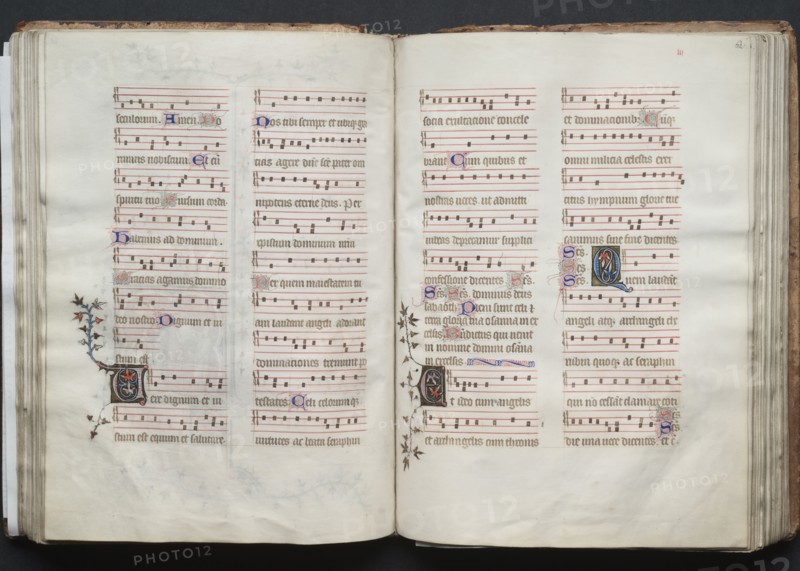 seculorum. Amen. Do
minus vobiscum. Et cū
spiritu tuo Sursum corda.
habemus ad dominum.
Gracias agamus domino
deo nostro Dignum et iu
stum est
Vere dignum et iu
stum est equum et salutare.
Nos tibi semper et ubique gra
cias agere dñe sc̄e pater om
nipotens eterne deus. Per
christum dominum nrm
Per quem maiestatem tu
am laudant angeli adorant
dominationes tremunt po
testates. Celi celorumqꝫ
virtutes ac beata seraphin
socia exultatione concele
brant Cum quibus et
nostras voces ut admitti
iubeas deprecamur supplici
confessione dicentes Sc̄s.
Sc̄s. Sc̄s. dominus deus
sabaoth Pleni sunt celi et
terra gloria tua osanna in ex
celsis Benedictus qui venit
in nomine domini osāna
in excelsis
Et ideo cum angelis
et archangelis cum thronis
et dominationibꝫ Cūqꝫ
omni milicia celestis exer
citus hympnum glorie tue
canimus sine fine dicentes.
Sc̄s.
Sc̄s
Sc̄s. Quem laudāt
angeli atqꝫ archangeli che
rubin quoqꝫ ac seraphin
qui nō cessāt clamare coti
die una voce dicentes. Sc̄s
Sc̄s
62
PHOTO12